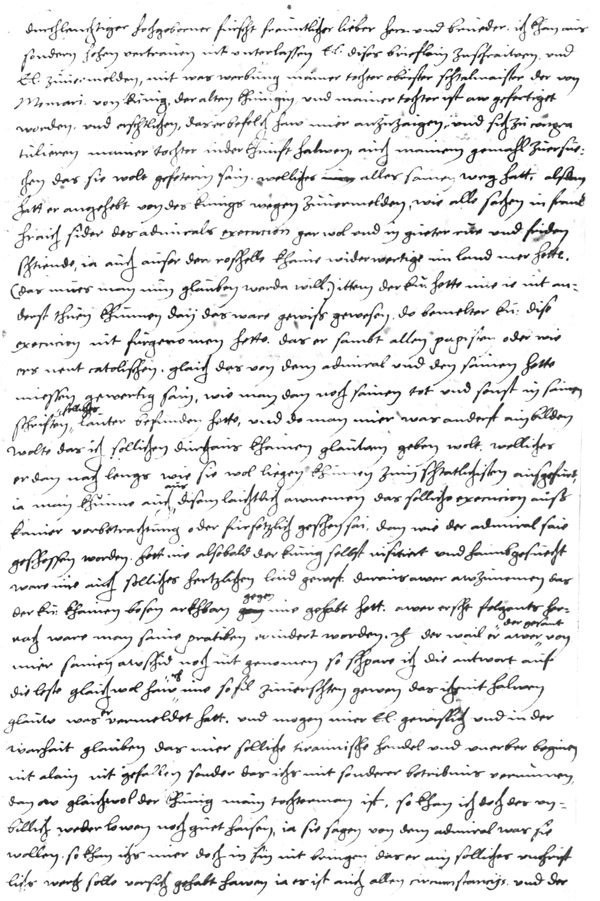 durchlauchtiger hochgeborner fürscht freuntlicher lieber herr und brueder. ich khan aus
sondern hohen vertrauen nit unterlassen El. dises brieflein zuschreiben. und
El. zuvermelden, mit was werbung mainer tochter obrister sthalmaister der von
Memari. von künig, der alten khünigin und mainer tochter ist aw gefertiget
worden. und erschtlichen, das er befelch haw mier anzuzaigen, und sich zu congra
tulieren mainer tochter niderkhunft halwen, auch mainem gemahl zuersue-
chen das sie wolt gefaterin sain. welliches alles sainen weg hatt. alsdan
hatt er angehebt von des künigs wegen zuvermelden, wie alle sachen in frank
hraich sider des admirals execucion gar wol und in gueter rue und friden
schtiende, ia auch ausser der roschelle khaine widerwertige im land mer hette.
(das mues man nun glauben werda will) ittem der ku. hette nie ie nit an-
derst thuen khünnen dan des ware gewiss gewesen, do bemelter ku. dise
execucion nit fürgenomen hette. das er sambt allen papisten oder wie
ers nent catolischen. gleich das von dem admiral und den sainen hette
miessen gewertig sain, wie man dan noch sainen tot und sonst in sainen
schriften, solliches lauter befunden hette, und do man mier was anderst ainbilden
wolte das ich sollichen durchaus khainen glauben geben wolt. welliches
er dan nach lengs wie sie wol liegen khünnen zum schtatlichisten ausgefürt,
ia main khünne auch aus disem laichtlich awnemen das solliche execucion auss
kainer vorbetrachtung oder fürsetzlich geschehen sai, dan wie der admiral saie
geschossen worden. hett ine alsbald der künig selbst visitiert und haimbgesuecht
ware ime auch solliches hertzlichen laid gewest. daraus awer awzunemen das
der ku. khainen bosen arkhban gegen ime gehabt hett. awer erscht folgents her-
nach ware man saine pratiken erindert worden. etc. der wail er awer der gesant von
mier sainen awschid noch nit genomen so schpare ich die antwort auf
die leste gleichwol haw ich ime sofil zuverschten gewen das ichs nit halwen
glaub was er vermeldet hatt. und mogen mier El. gewisslich und in der
warhait glauben das mier solliche tiranische handel und unerber beginen
nit alain nit gefallen sonder das ichs mit sonderer betriebnus vernumen,
dan ow gleichwol der khünig main tochterman ist, so khan ich doch das un-
billich weder lowen noch guet haisen, ia sie sagen von dem admiral was sie
wollen. so khan ichs mier doch in sin nit bringen das er ain solliches unchrist
lichs werch solle vorsich gehabt hawen ia es ist auch allen circumstancijs. und der